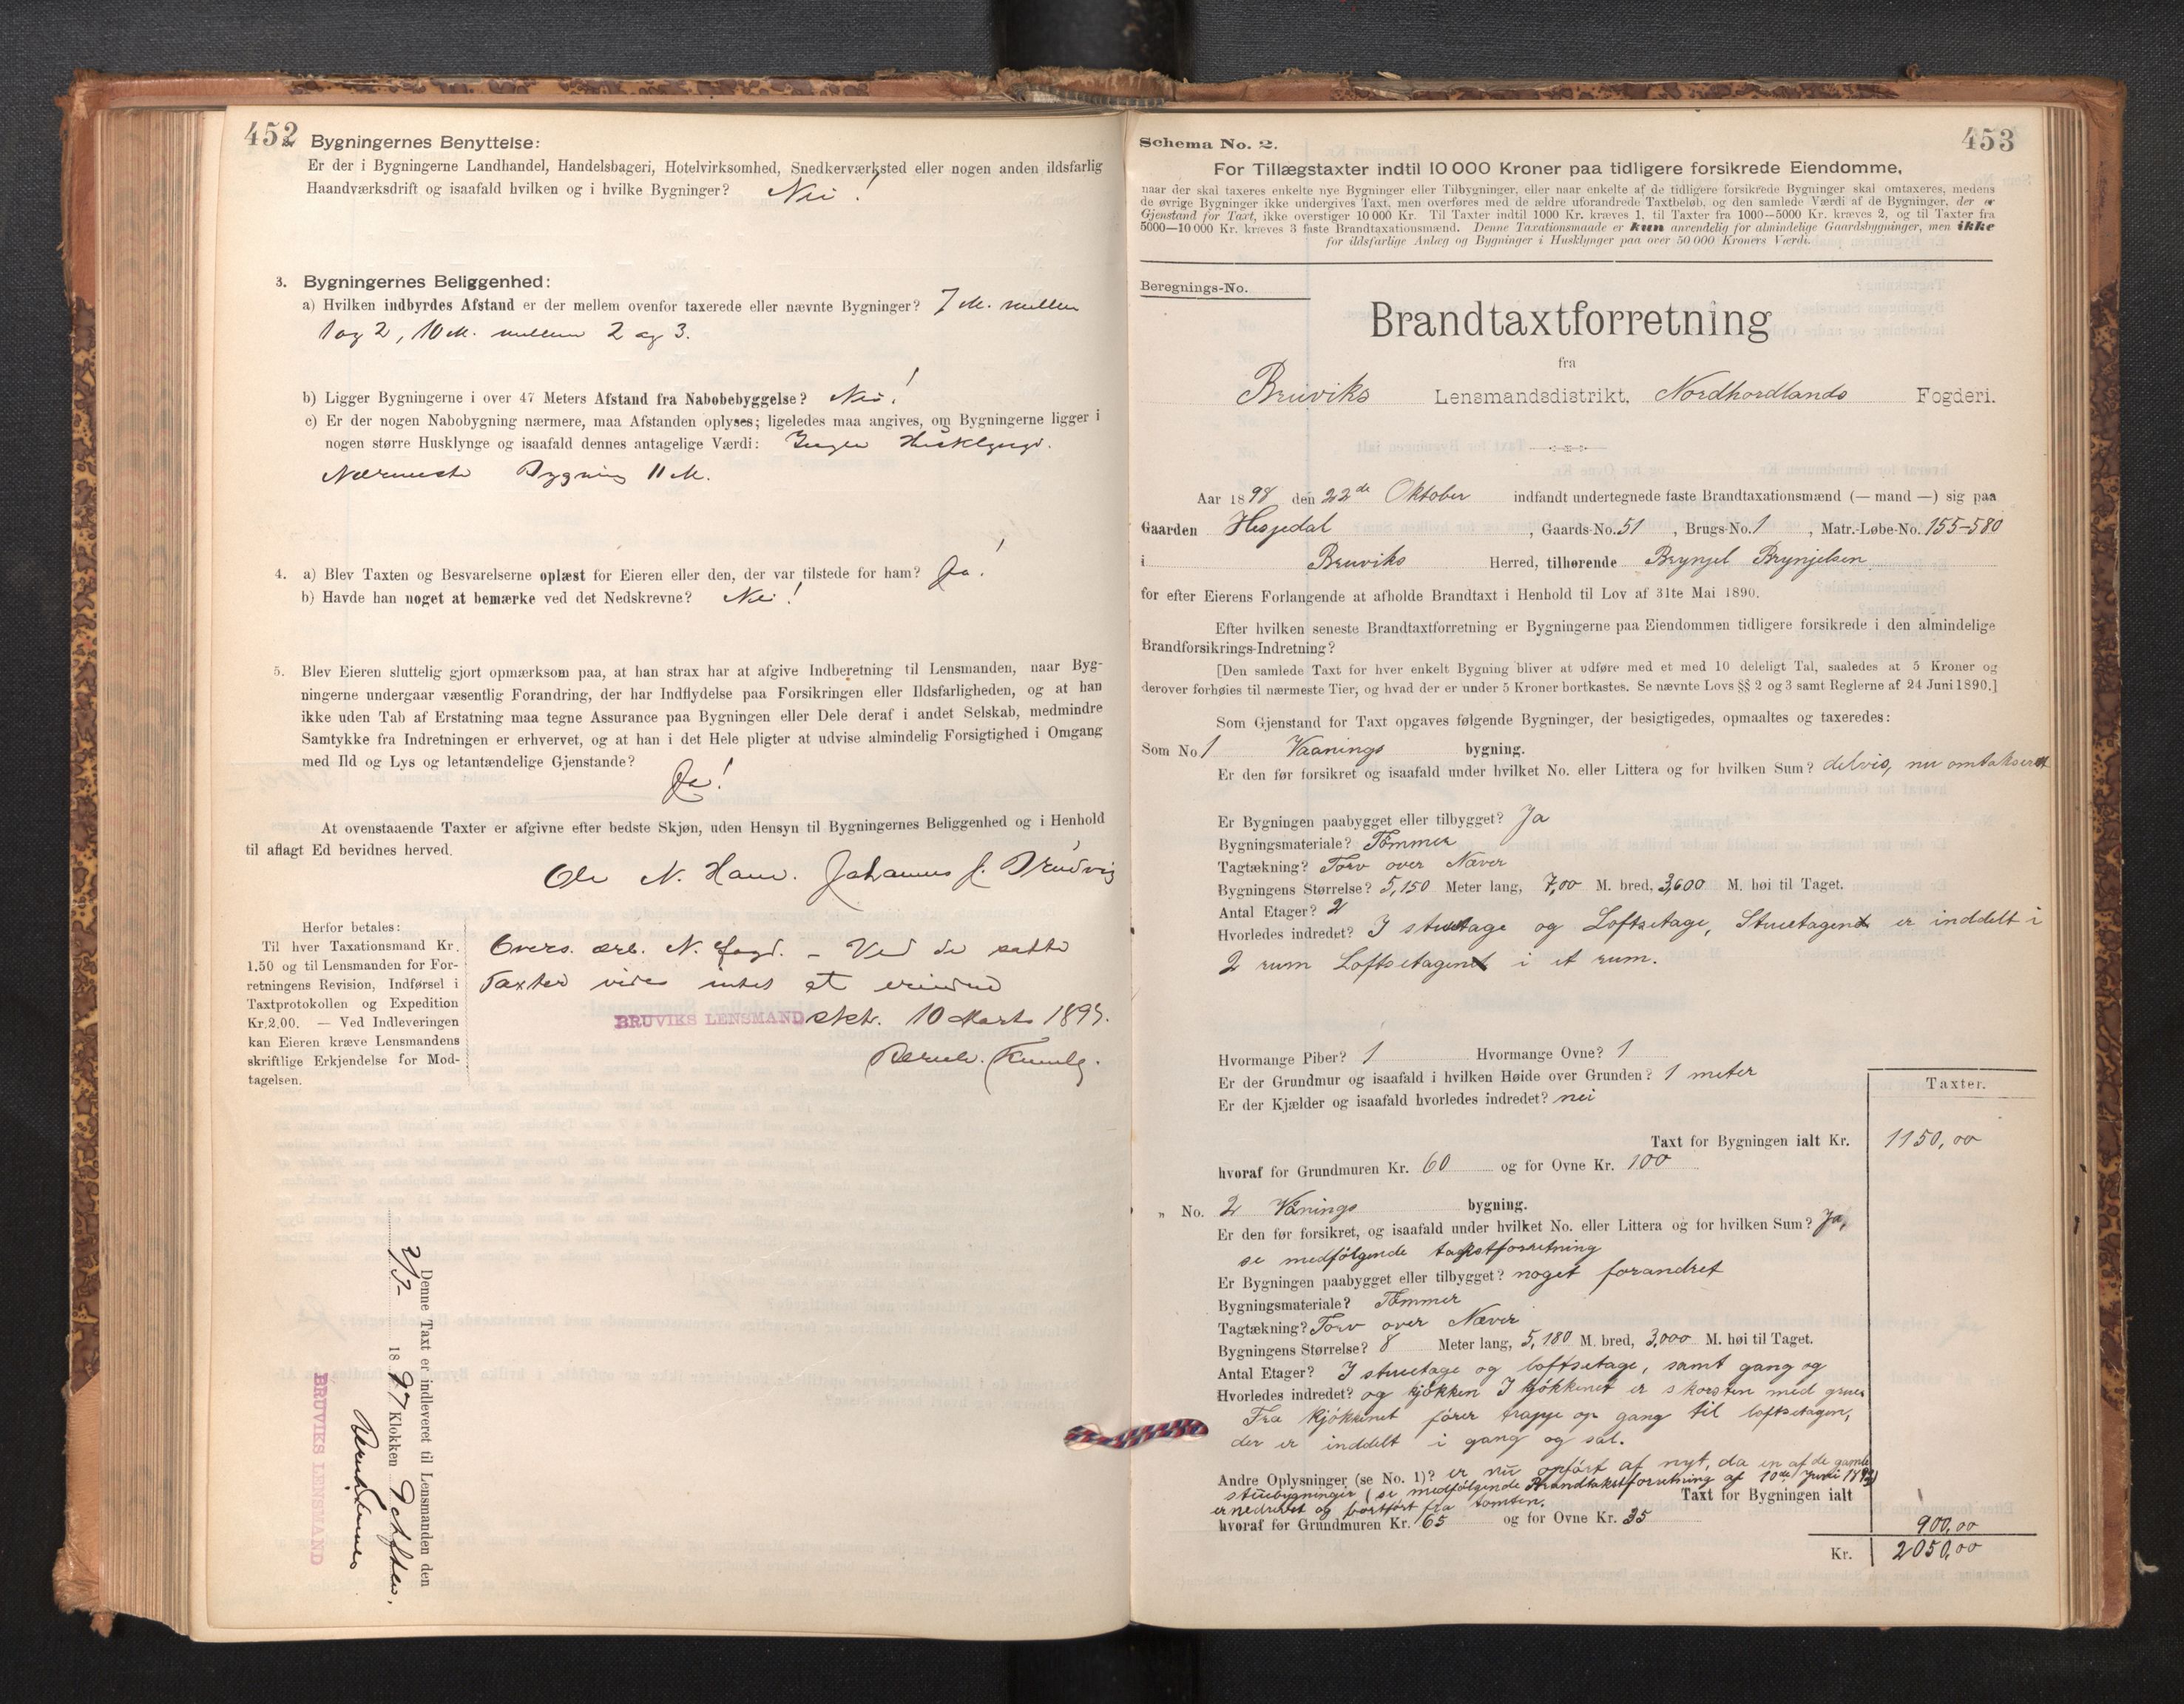 452
Bygningernes Benyttelse:
Er der i Bygningerne Landhandel, Handelsbageri, Hotelvirksomhed, Snedkerværksted eller nogen anden ildsfarlig
Haandværksdrift og isaafald hvilken og i hvilke Bygninger? Nei!
3. Bygningernes Beliggenhed:
a) Hvilken indbyrdes Afstand er der mellem ovenfor taxerede eller nævnte Bygninger? 7 M. mellem
1 og 2, 10 M. mellem 2 og 3.
b) Ligger Bygningerne i over 47 Meters Afstand fra Nabobebyggelse? Nei!
c) Er der nogen Nabobygning nærmere, maa Afstanden oplyses; ligeledes maa angives, om Bygningerne ligger i
nogen større Husklynge og isaafald dennes antagelige Værdi: Ingen Husklynge.
Nærmeste Bygning 11 M.
4. a) Blev Taxten og Besvarelserne oplæst for Eieren eller den, der var tilstede for ham? Ja!
b) Havde han noget at bemærke ved det Nedskrevne? Nei!
5. Blev Eieren sluttelig gjort opmærksom paa, at han strax har at afgive Indberetning til Lensmanden, naar Byg-
ningerne undergaar væsentlig Forandring, der har Indflydelse paa Forsikringen eller Ildsfarligheden, og at han
ikke uden Tab af Erstatning maa tegne Assurance paa Bygningen eller Dele deraf i andet Selskab, medmindre
Samtykke fra Indretningen er erhvervet, og at han i det Hele pligter at udvise almindelig Forsigtighed i Omgang
med Ild og Lys og letantændelige Gjenstande?
Ja!
At ovenstaaende Taxter er afgivne efter bedste Skjøn, uden Hensyn til Bygningernes Beliggenhed og i Henhold
til aflagt Ed bevidnes herved.
Ole N. Johannes
Herfor betales:
Til hver Taxationsmand Kr.
1.50 og til Lensmanden for For-
retningens Revision, Indførsel i
Taxtprotokollen og Expedition
Kr. 2.00. — Ved Indleveringen
kan Eieren kræve Lensmandens
skriftlige Erkjendelse for Mod-
tagelsen.
Overs. ærb. N. Fogd. - Ved de satte
Taxter vides intet at erindre
BRUVIKS LENSMAND 10 Marts
Denne Taxt er indleveret til Lensmanden den
1897 Klokken 9 Aften.
BRUVIKS LENSMAND
453
Schema No. 2.
For Tillægstaxter indtil 10 000 Kroner paa tidligere forsikrede Eiendomme,
naar der skal taxeres enkelte nye Bygninger eller Tilbygninger, eller naar enkelte af de tidligere forsikrede Bygninger skal omtaxeres, medens
de øvrige Bygninger ikke undergives Taxt, men overføres med de ældre uforandrede Taxtbeløb, og den samlede Værdi af de Bygninger, der er
Gjenstand for Taxt, ikke overstiger 10 000 Kr. Til Taxter indtil 1000 Kr. kræves 1, til Taxter fra 1000—5000 Kr. kræves 2, og til Taxter fra
5000—10 000 Kr. kræves 3 faste Brandtaxationsmænd. Denne Taxationsmaade er kun anvendelig for almindelige Gaardsbygninger, men ikke
for ildsfarlige Anlæg og Bygninger i Husklynger paa over 50 000 Kroners Værdi.
Beregnings-No.
Brandtaxtforretning
fra
Bruviks Lensmandsdistrikt, Nordhordlands Fogderi.
Aar 1898 den 22de Oktober indfandt undertegnede faste Brandtaxationsmænd (— mand —) sig paa
Gaarden Hesjedal, Gaards-No. 51, Brugs-No. 1, Matr.-Løbe-No. 155-580
i Bruviks Herred, tilhørende Brynjel Brynjelsen
for efter Eierens Forlangende at afholde Brandtaxt i Henhold til Lov af 31te Mai 1890.
Efter hvilken seneste Brandtaxtforretning er Bygningerne paa Eiendommen tidligere forsikrede i den almindelige
Brandforsikrings-Indretning?
[Den samlede Taxt for hver enkelt Bygning bliver at udføre med et med 10 deleligt Tal, saaledes at 5 Kroner og
derover forhøies til nærmeste Tier, og hvad der er under 5 Kroner bortkastes. Se nævnte Lovs §§ 2 og 3 samt Reglerne af 24 Juni 1890.]
Som Gjenstand for Taxt opgaves følgende Bygninger, der besigtigedes, opmaaltes og taxeredes:
Som No 1 Vaanings bygning.
Er den før forsikret og isaafald under hvilket No. eller Littera og for hvilken Sum? delvis, nu omtakseret
Er Bygningen paabygget eller tilbygget? Ja
Bygningsmateriale? Tømmer
Tagtækning? Torv over Næver
Bygningens Størrelse? 5,150 Meter lang, 7,00 M. bred, 3,600 M. høi til Taget.
Antal Etager? 2
Hvorledes indredet? I stuetage og Loftsetage, Stuetagen er inddelt i
2 rum Loftsetagen i et rum.
Hvormange Piber? 1 Hvormange Ovne? 1
Er der Grundmur og isaafald i hvilken Høide over Grunden? 1 meter
Er der Kjælder og isaafald hvorledes indredet? nei
Taxter.
Taxt for Bygningen ialt Kr. 1150,00
hvoraf for Grundmuren Kr. 60 og for Ovne Kr. 100
„ No. 2 Vånings bygning.
Er den før forsikret, og isaafald under hvilket No. eller Littera og for hvilken Sum? Ja,
se medfølgende takstforretning
Er Bygningen paabygget eller tilbygget? noget forandret
Bygningsmateriale? Tømmer
Tagtækning? Torv over Næver
Bygningens Størrelse? 8 Meter lang, 5,180 M. bred, 3,000 M. høi til Taget.
Antal Etager? I stuetage og loftsetage, samt gang og
Hvorledes indredet? og kjøkken I kjøkkenet er skorsten med grue
Fra kjøkkenet fører trappe op gang til loftsetagen,
der er inddelt i gang og sal.
Andre Oplysninger (se No. 1)? er nu opført af nyt, da en af de gamle
stuebygninger (se medfølgende Brandtakstforretning af 10de Juni
er nedrevet og bortført fra tomten. Taxt for Bygningen ialt
hvoraf for Grundmuren Kr. 65 og for Ovne Kr. 35 900,00
Kr. 2050,00